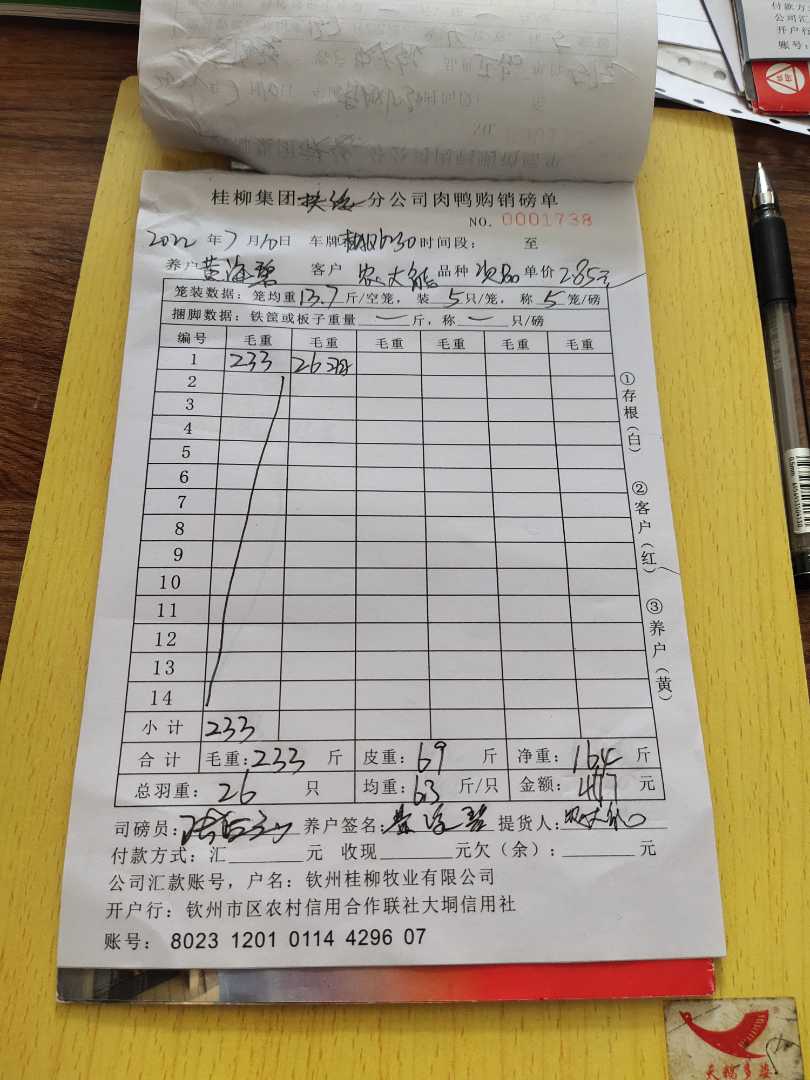 付款方
公司汇
开户行
账号:
桂柳集团 分公司肉鸭购销磅单
NO. 0001738
2022 年 7 月 10 日 车牌 时间段: 至
养户 黄海碧 客户 农大能 品种 次品 单价 2.85元
笼装数据: 笼均重 13.7 斤/空笼, 装 5 只/笼, 称 5 笼/磅
捆脚数据: 铁筐或板子重量 — 斤, 称 — 只/磅
编号 毛重 毛重 毛重 毛重 毛重 毛重
1 233 26羽
2
3
4
5
6
7
8
9
10
11
12
13
14
小计 233
合计 毛重: 233 斤 皮重: 69 斤 净重: 164 斤
总羽重: 26 只 均重: 6.3 斤/只 金额: 元
①存根(白) ②客户(红) ③养户(黄)
司磅员: 养户签名: 黄海碧 提货人: 农大能
付款方式: 汇 元 收现 元欠(余): 元
公司汇款账号, 户名: 钦州桂柳牧业有限公司
开户行: 钦州市区农村信用合作联社大垌信用社
账号: 8023 1201 0114 4296 07
0.5mm